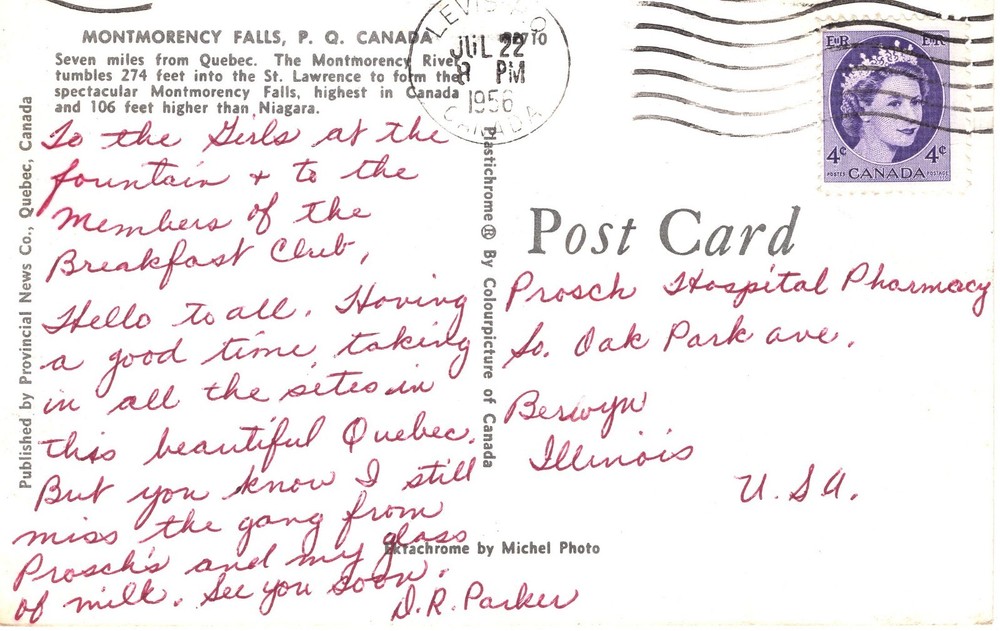 MONTMORENCY FALLS, P. Q. CANADA
Seven miles from Quebec. The Montmorency River
tumbles 274 feet into the St. Lawrence to form the
spectacular Montmorency Falls, highest in Canada
and 106 feet higher than Niagara.
To the Girls at the
fountain + to the
Members of the
Breakfast Club,
Hello to all. Having
a good time taking
in all the sites in
this beautiful Quebec.
But you know I still
miss the gang from
Prosch's and my glass
of milk. See you soon.
D.R. Parker
Published by Provincial News Co., Quebec, Canada
Plastichrome® By Colourpicture of Canada
Ektachrome by Michel Photo
LEVIS P.Q
JUL 22
8 PM
1956
CANADA
EIIR EIIR
4¢ 4¢
POSTES CANADA POSTAGE
Post Card
Prosch Hospital Pharmacy
So. Oak Park ave.
Berwyn
Illinois
U.SA.